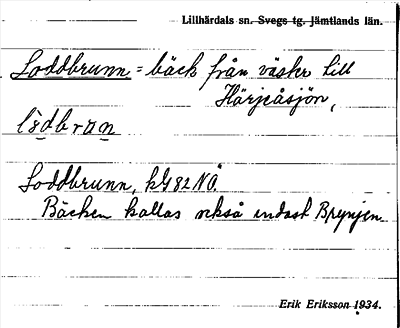 Lillhärdals sn. Svegs tg. Jämtlands län.
Loddbrunn = bäck från väster till
Härjeåsjön,
Loddbrunn, k 82 NÖ.
Bäcken kallas också endast Brynjen
Erik Eriksson 1934.